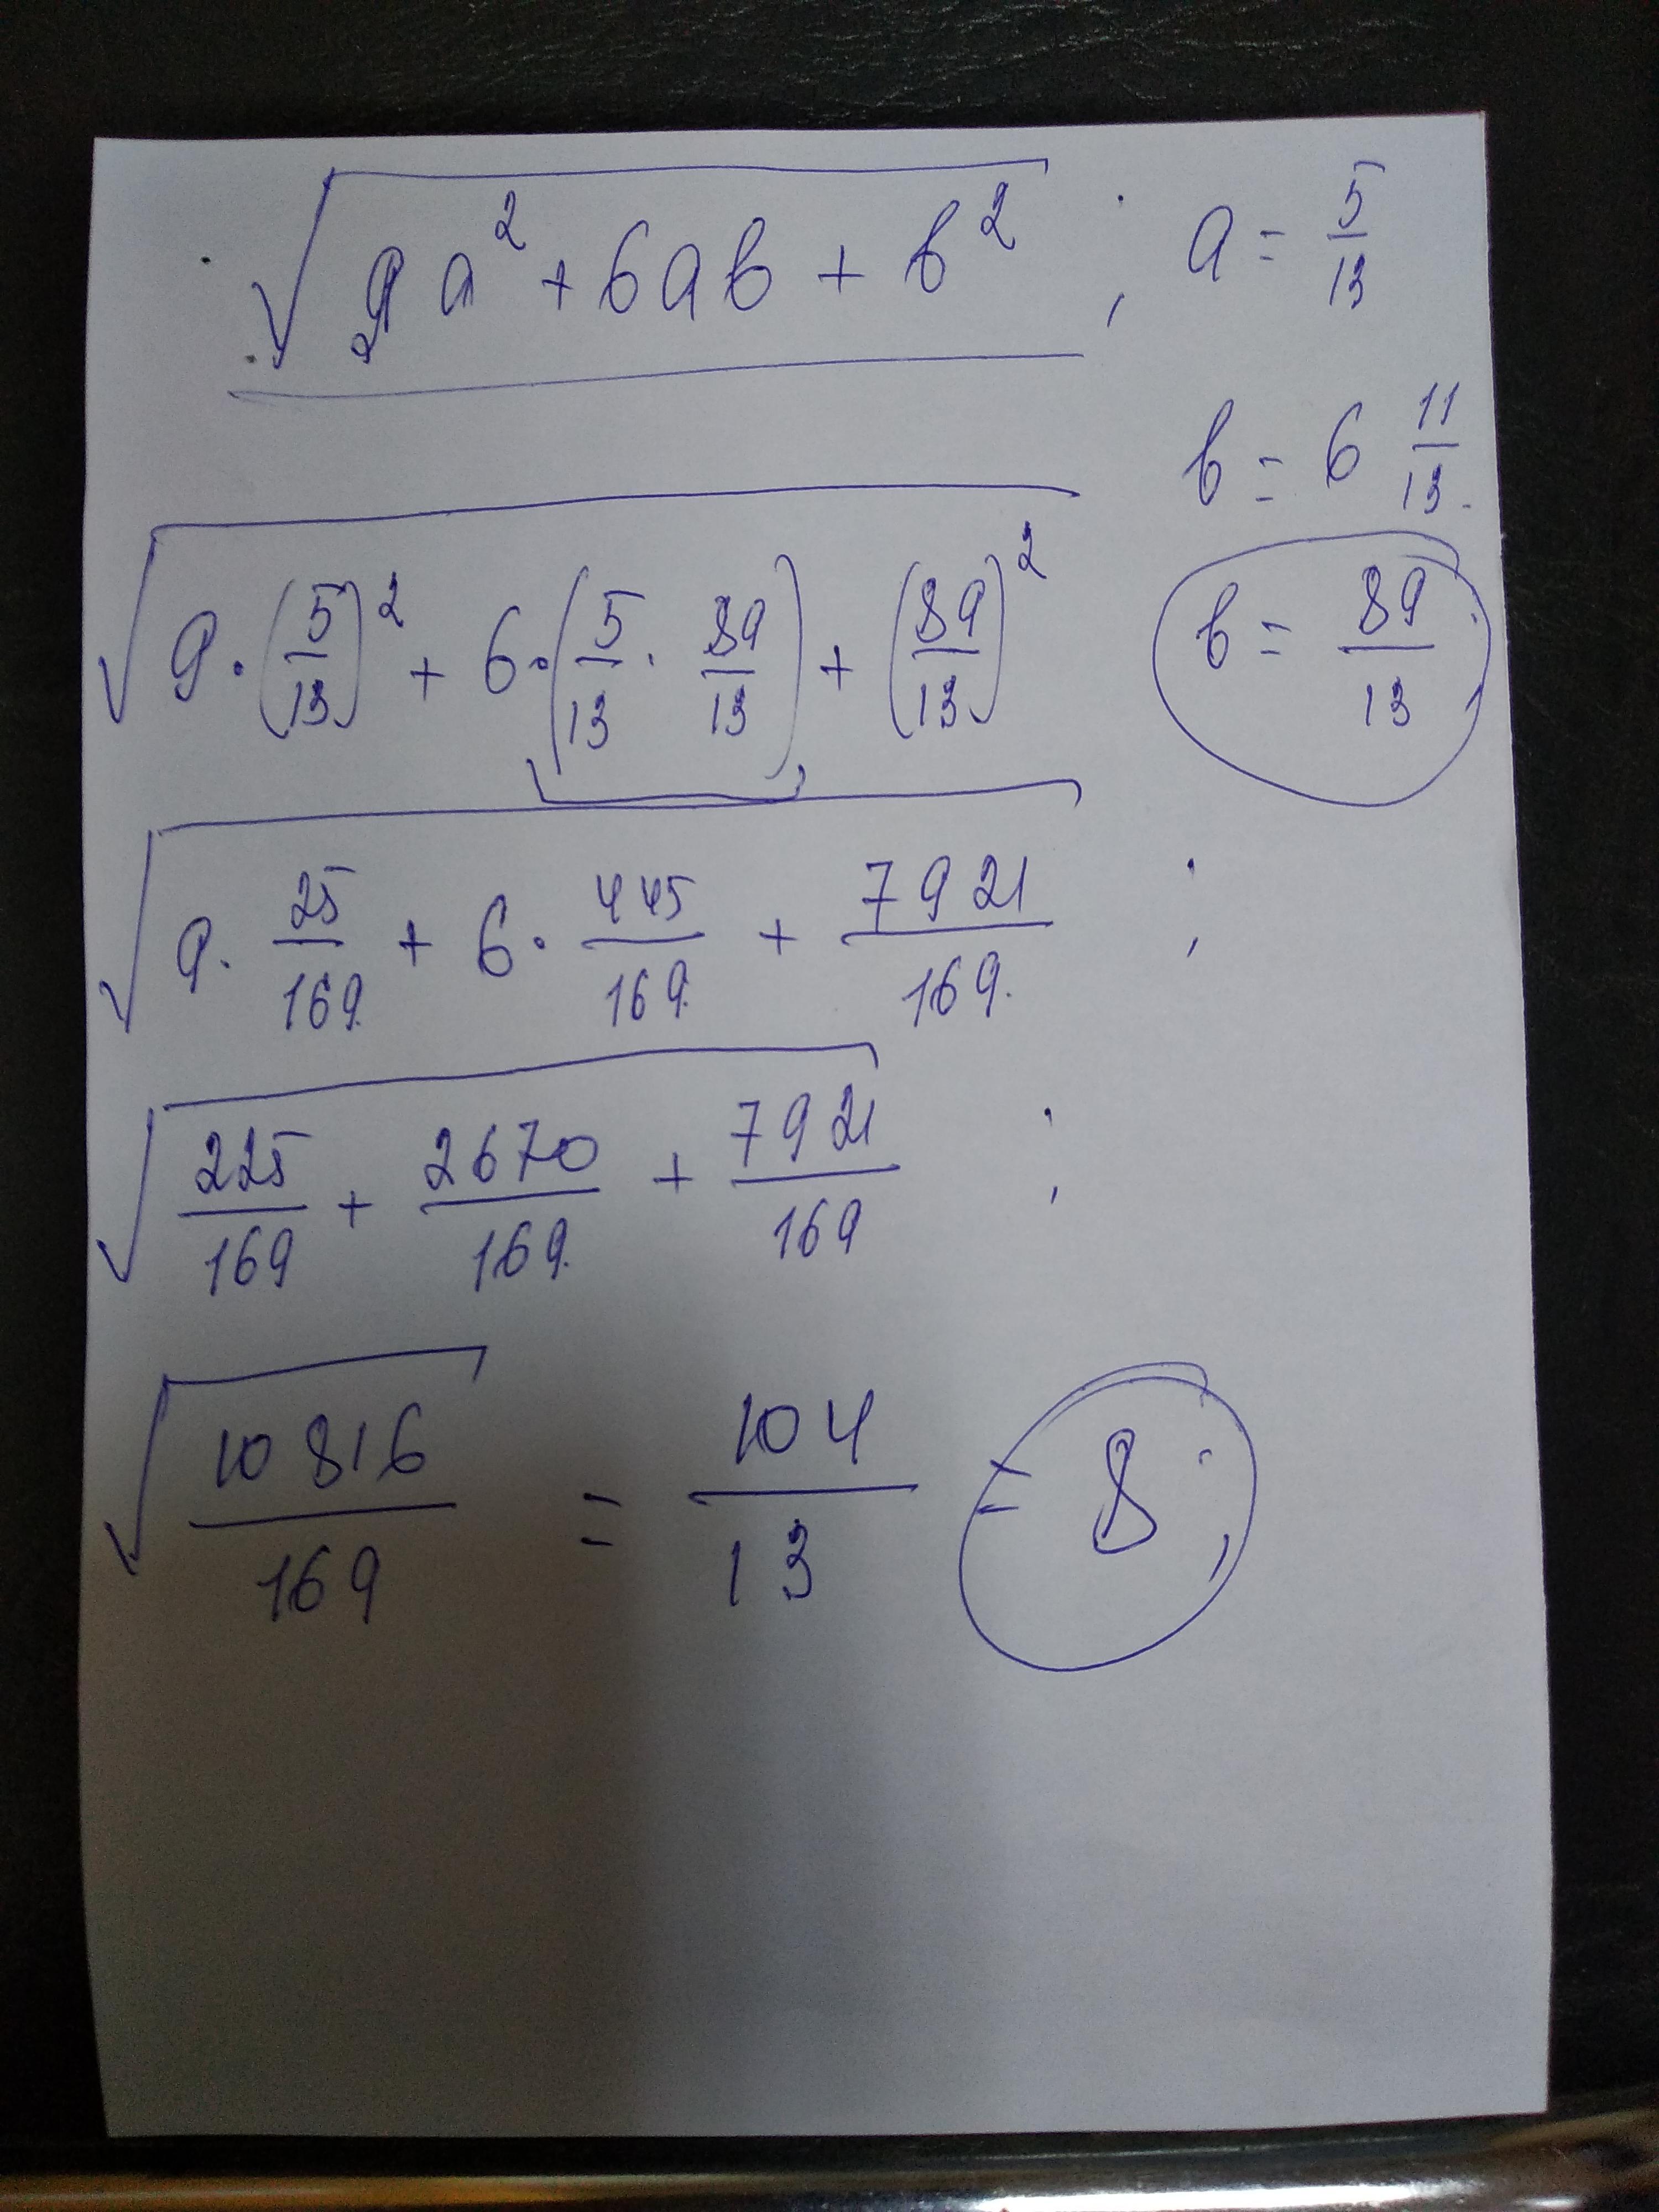 √(9a² + 6ab + b²) ; a = 5/13
b = 6 11/13
√(9·(5/13)² + 6·(5/13 · 89/13) + (89/13)²) b = 89/13 ;
√(9· 25/169 + 6· 445/169 + 7921/169) ;
√(225/169 + 2670/169 + 7921/169) ;
√(10816/169) = 104/13 = 8 ;